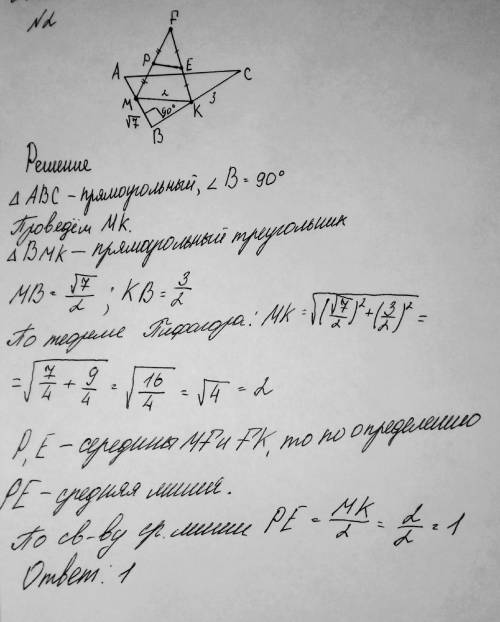 N2
F
P
E
A
C
2
M
K
√7
90°
3
B
Решение
△ ABC – прямоугольный, ∠B = 90°
Проведём MK.
△ BMK – прямоугольный треугольник
MB = √7/2 ; KB = 3/2
По теореме Пифагора: MK = √((√7/2)² + (3/2)²) =
= √(7/4 + 9/4) = √(16/4) = √4 = 2
P, E – середины MF и FK, то по определению
PE – средняя линия.
По св-ву ср. линии PE = MK/2 = 2/2 = 1
Ответ: 1